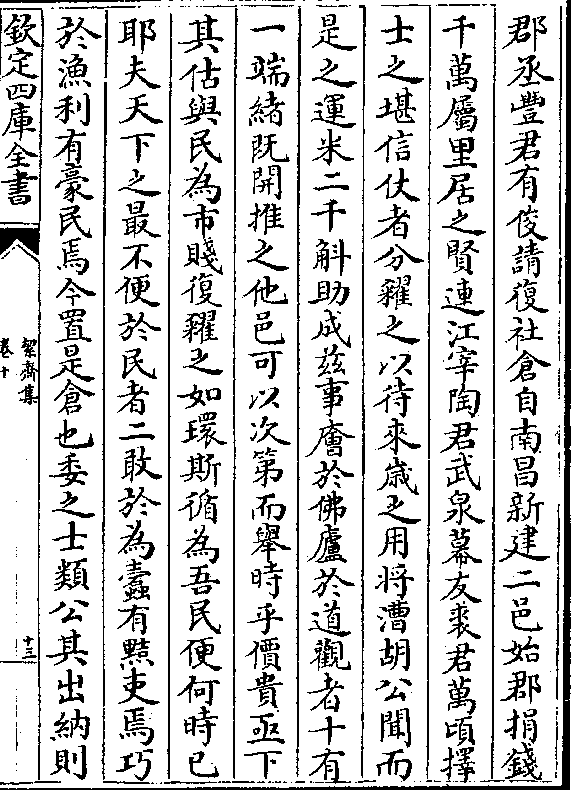 郡丞豐君有俊請復社倉自南昌新建二邑始郡捐錢
千萬屬里居之賢連江宰陶君武泉幕友裘君萬頃擇
士之堪信仗者分糴之以待來歳之用將漕胡公聞而
是之運米二千斛助成兹事廥於佛廬於道觀者十有
一端緒既開推之他邑可以次第而舉時乎價貴亟下
其估與民為市賤復糴之如環斯循為吾民便何時已
耶夫天下之最不便於民者二敢於為蠧有黠吏焉巧
於漁利有豪民焉今置是倉也委之士類公其出納則
欽定四庫全書
絜齋集
卷十
十三